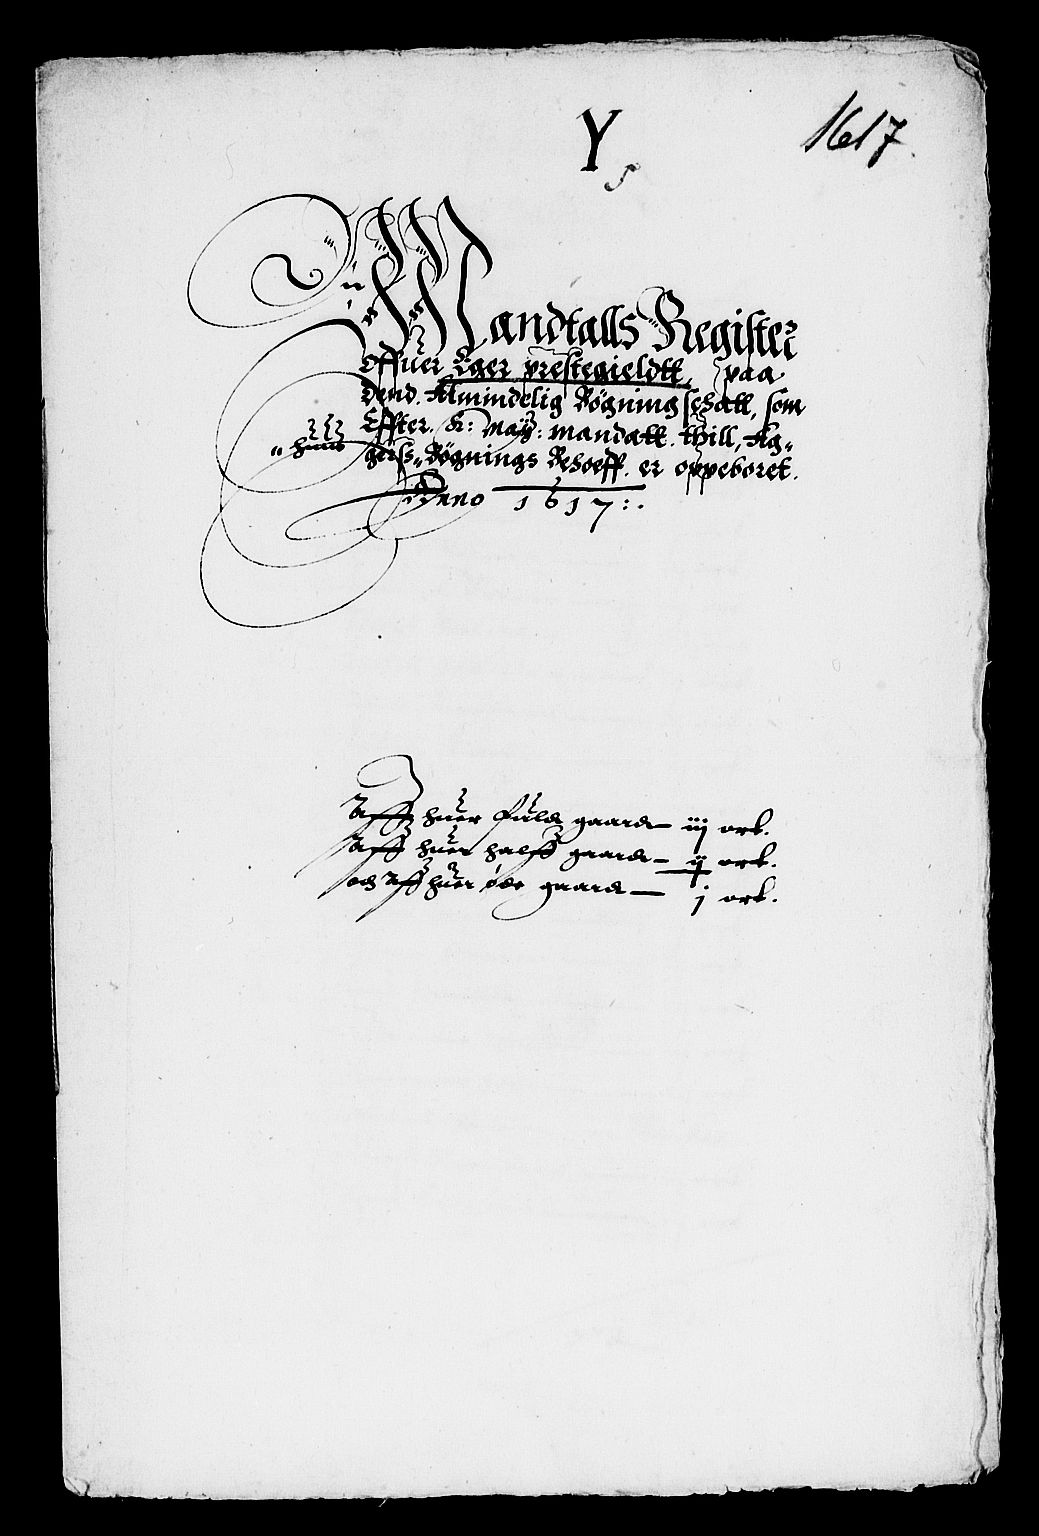 Y
1617
Mandtalls Register
offuer Eger prestegieldtt, paa
dend. Almindelig Bögning schatt, som
Effter. K: May: mandatt. thill, Ag„
„huus gerss„ Bögnings Behoeff. er oppeboret.
Anno 1617:.
Aff huer fuld gaard — iij ort.
Aff huer halff gaard — ij ort.
och Aff huer øde gaard — j ort.